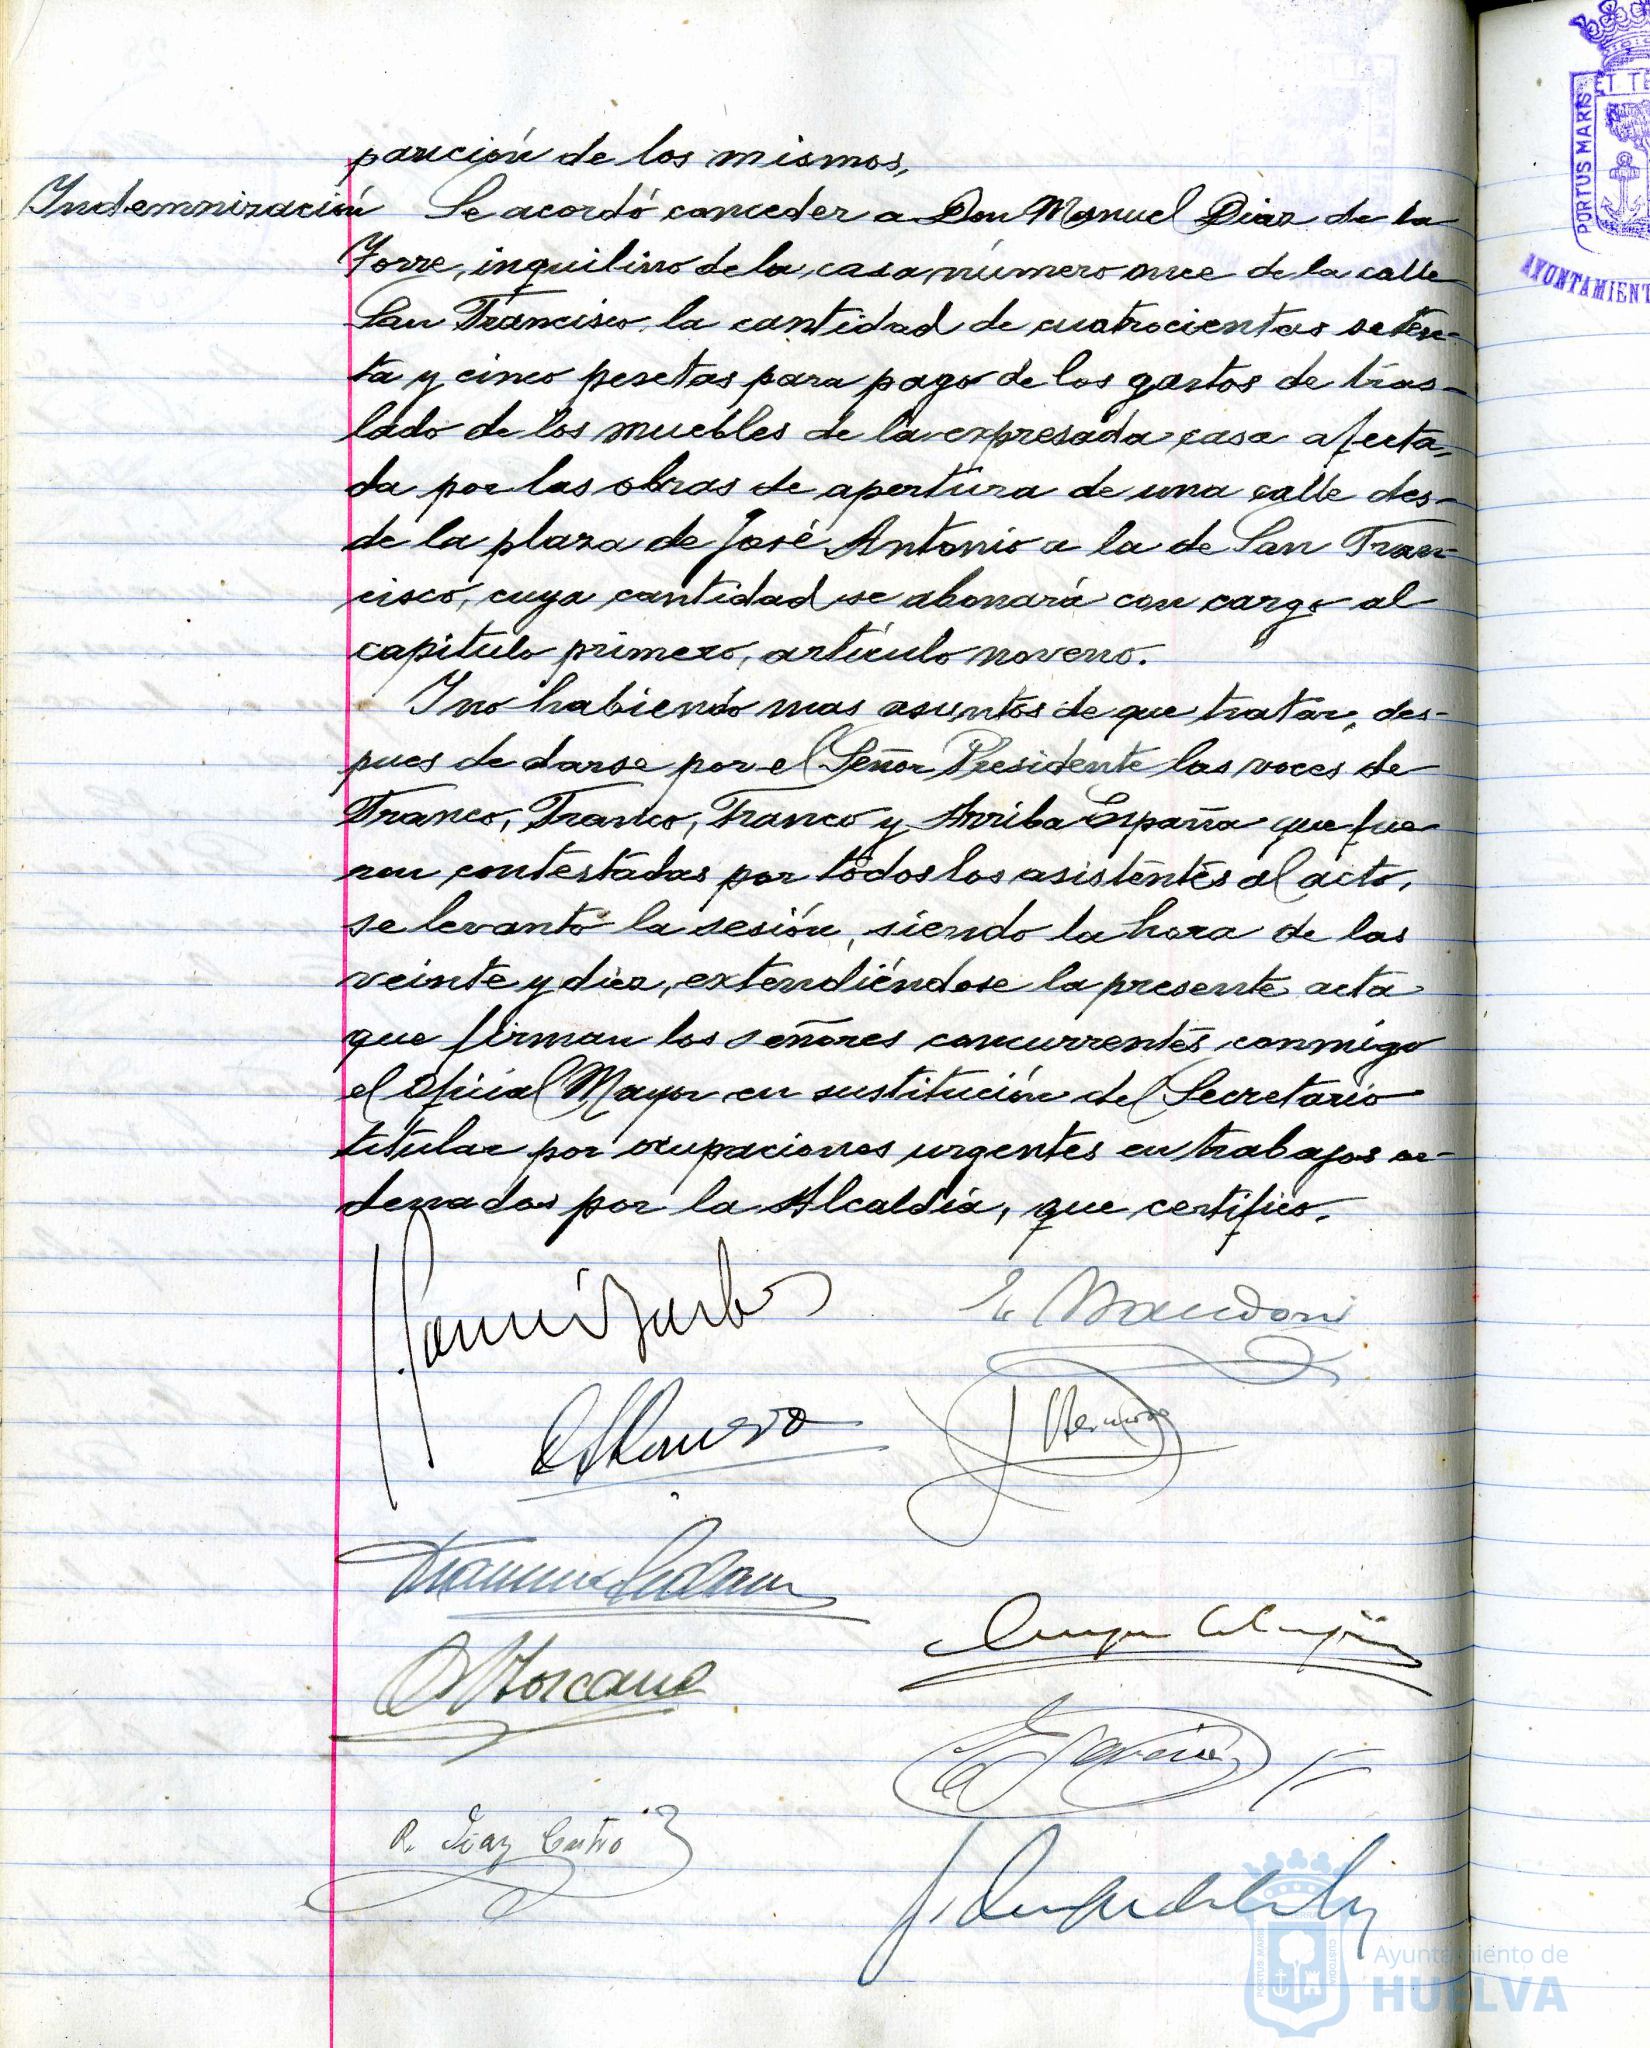 parición de los mismos.
Indemnización Se acordó conceder a Don Manuel Diaz de la
Torre, inquilino de la casa número once de la calle
San Francisco, la cantidad de cuatrocientas seten-
ta y cinco pesetas para pago de los gastos de tras-
lado de los muebles de la expresada casa afecta-
da por las obras de apertura de una calle des-
de la plaza de José Antonio a la de San Fran-
cisco, cuya cantidad se abonará con cargo al
capitulo primero, articulo noveno.
Y no habiendo mas asuntos de que tratar, des-
pues de darse por el Señor Presidente las voces de
Franco, Franco, Franco y Arriba España que fue
ron contestadas por todos los asistentes al acto,
se levantó la sesión, siendo la hora de las
veinte y diez, extendiéndose la presente acta
que firman los señores concurrentes conmigo
el Oficial Mayor en sustitución del Secretario
titular por ocupaciones urgentes en trabajos or-
denados por la Alcaldia, que certifico.
R. Diaz Castro
PORTUS MARIS ET TE
AYUNTAMIENT
Ayuntamiento de
HUELVA